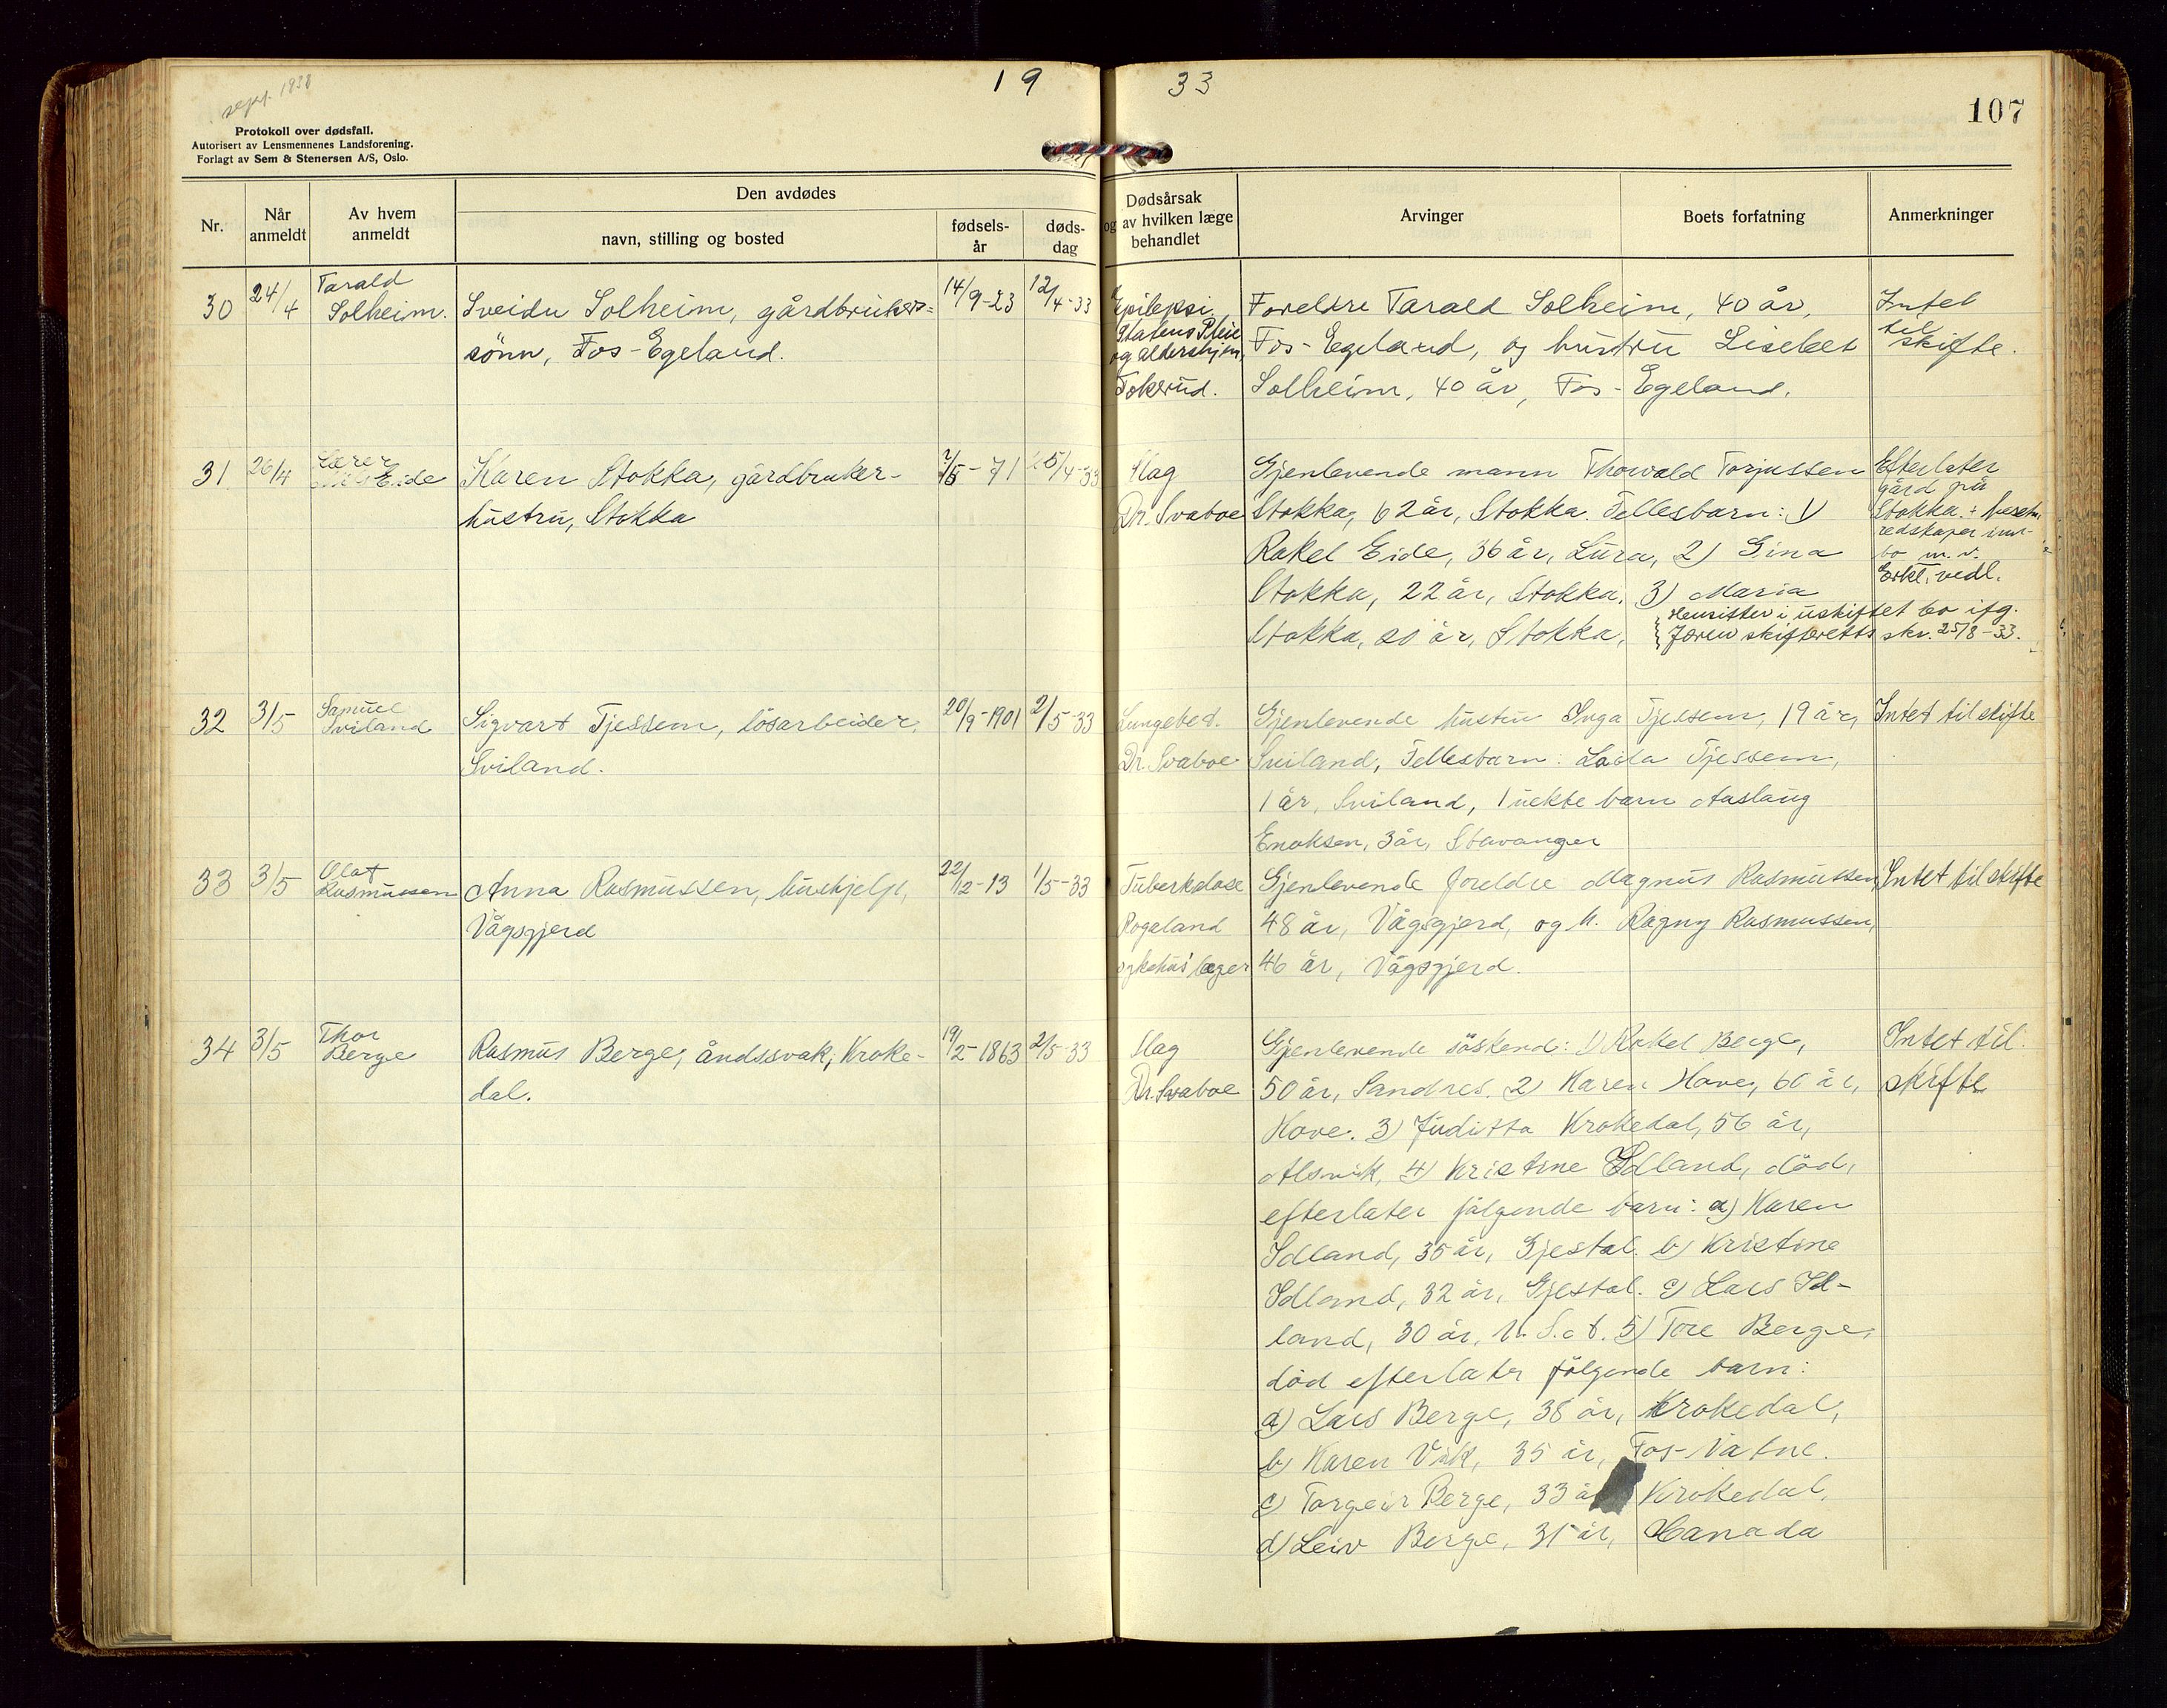 19 33
107
sept. 1938
Protokoll over dødsfall.
Autorisert av Lensmennenes Landsforening.
Forlagt av Sem & Stenersen A/S, Oslo.
Nr.
Når anmeldt
Av hvem anmeldt
Den avdødes
navn, stilling og bosted
fødsels-år
døds-dag
Dødsårsak
og av hvilken læge
behandlet
Arvinger
Boets forfatning
Anmerkninger
30 24/4 Tarald Solheim. Sveidu Solheim, gårdbrukers= 14/9-23 12/4-33
sönn, Fos-Egeland.
Epilepsi,
Statens Pleie
og aldershjem
Tokerud.
Foreldre Tarald Solheim, 40 år,
Fos-Egeland, og hustru Lisebet
Solheim, 40 år, Fos-Egeland.
Intet
til
skifte.
31 26/4 Lærer Eide Karen Stokka, gårdbruker- 7/5-71 25/4-33
hustru, Stokka
Slag
Dr. Svaboe
Gjenlevende mann Thorvald Torjussen
Stokka, 62 år, Stokka. Fellesbarn: 1)
Rakel Eide, 36 år, Lura, 2) Gina
Stokka, 22 år, Stokka, 3) Maria
Stokka, 20 år, Stokka,
Efterlater
gård på
Stokka + besetn.
redskaper inn-
bo m.v.
Erkl. vedl.
Hensitter i uskiftet bo ifg.
Jæren skifteretts skr. 25/8-33.
32 3/5 Samuel Sviland Sigvart Tjessem, lösarbeider, 20/9-1901 2/5-33
Sviland.
Lungebet.
Dr. Svaboe
Gjenlevende hustru Inga Tjessem, 19 år,
Sviland, Fellesbarn: Laila Tjessem,
1 år, Sviland, 1 uekte barn Aaslaug
Enoksen, 3 år, Stavanger
Intet til skifte
33 3/5 Olaf Rasmussen Anna Rasmussen, hushjelp, 22/12-13 1/5-33
Vågsgjerd
Tuberkulose
Rogaland
sykehus' læger
Gjenlevende foreldre Magnus Rasmussen,
48 år, Vågsgjerd, og h. Ragny Rasmussen,
46 år, Vågsgjerd.
Intet til skifte
34 3/5 Thor Berge Rasmus Berge, åndssvak, Kroke- 19/2-1863 2/5-33
dal.
Slag
Dr. Svaboe
Gjenlevende söskend: 1) Rakel Berge,
50 år, Sandnes. 2) Karen Hove, 60 år,
Hove. 3) Juditta Krokedal, 56 år,
Alsvik, 4) Kristine Idland, död,
efterlater fölgende barn: a) Karen
Idland, 35 år, Gjestal. b) Kristine
Idland, 32 år, Gjestal. c) Lars Id-
land, 30 år, U.S.A. 5) Tore Berge,
död efterlater fölgende barn:
a) Lars Berge, 38 år, Krokedal,
b) Karen Vik, 35 år, Fos-Vatne.
c) Torgeir Berge, 33 år Krokedal,
d) Leiv Berge, 31 år, Canada
Intet til
skifte